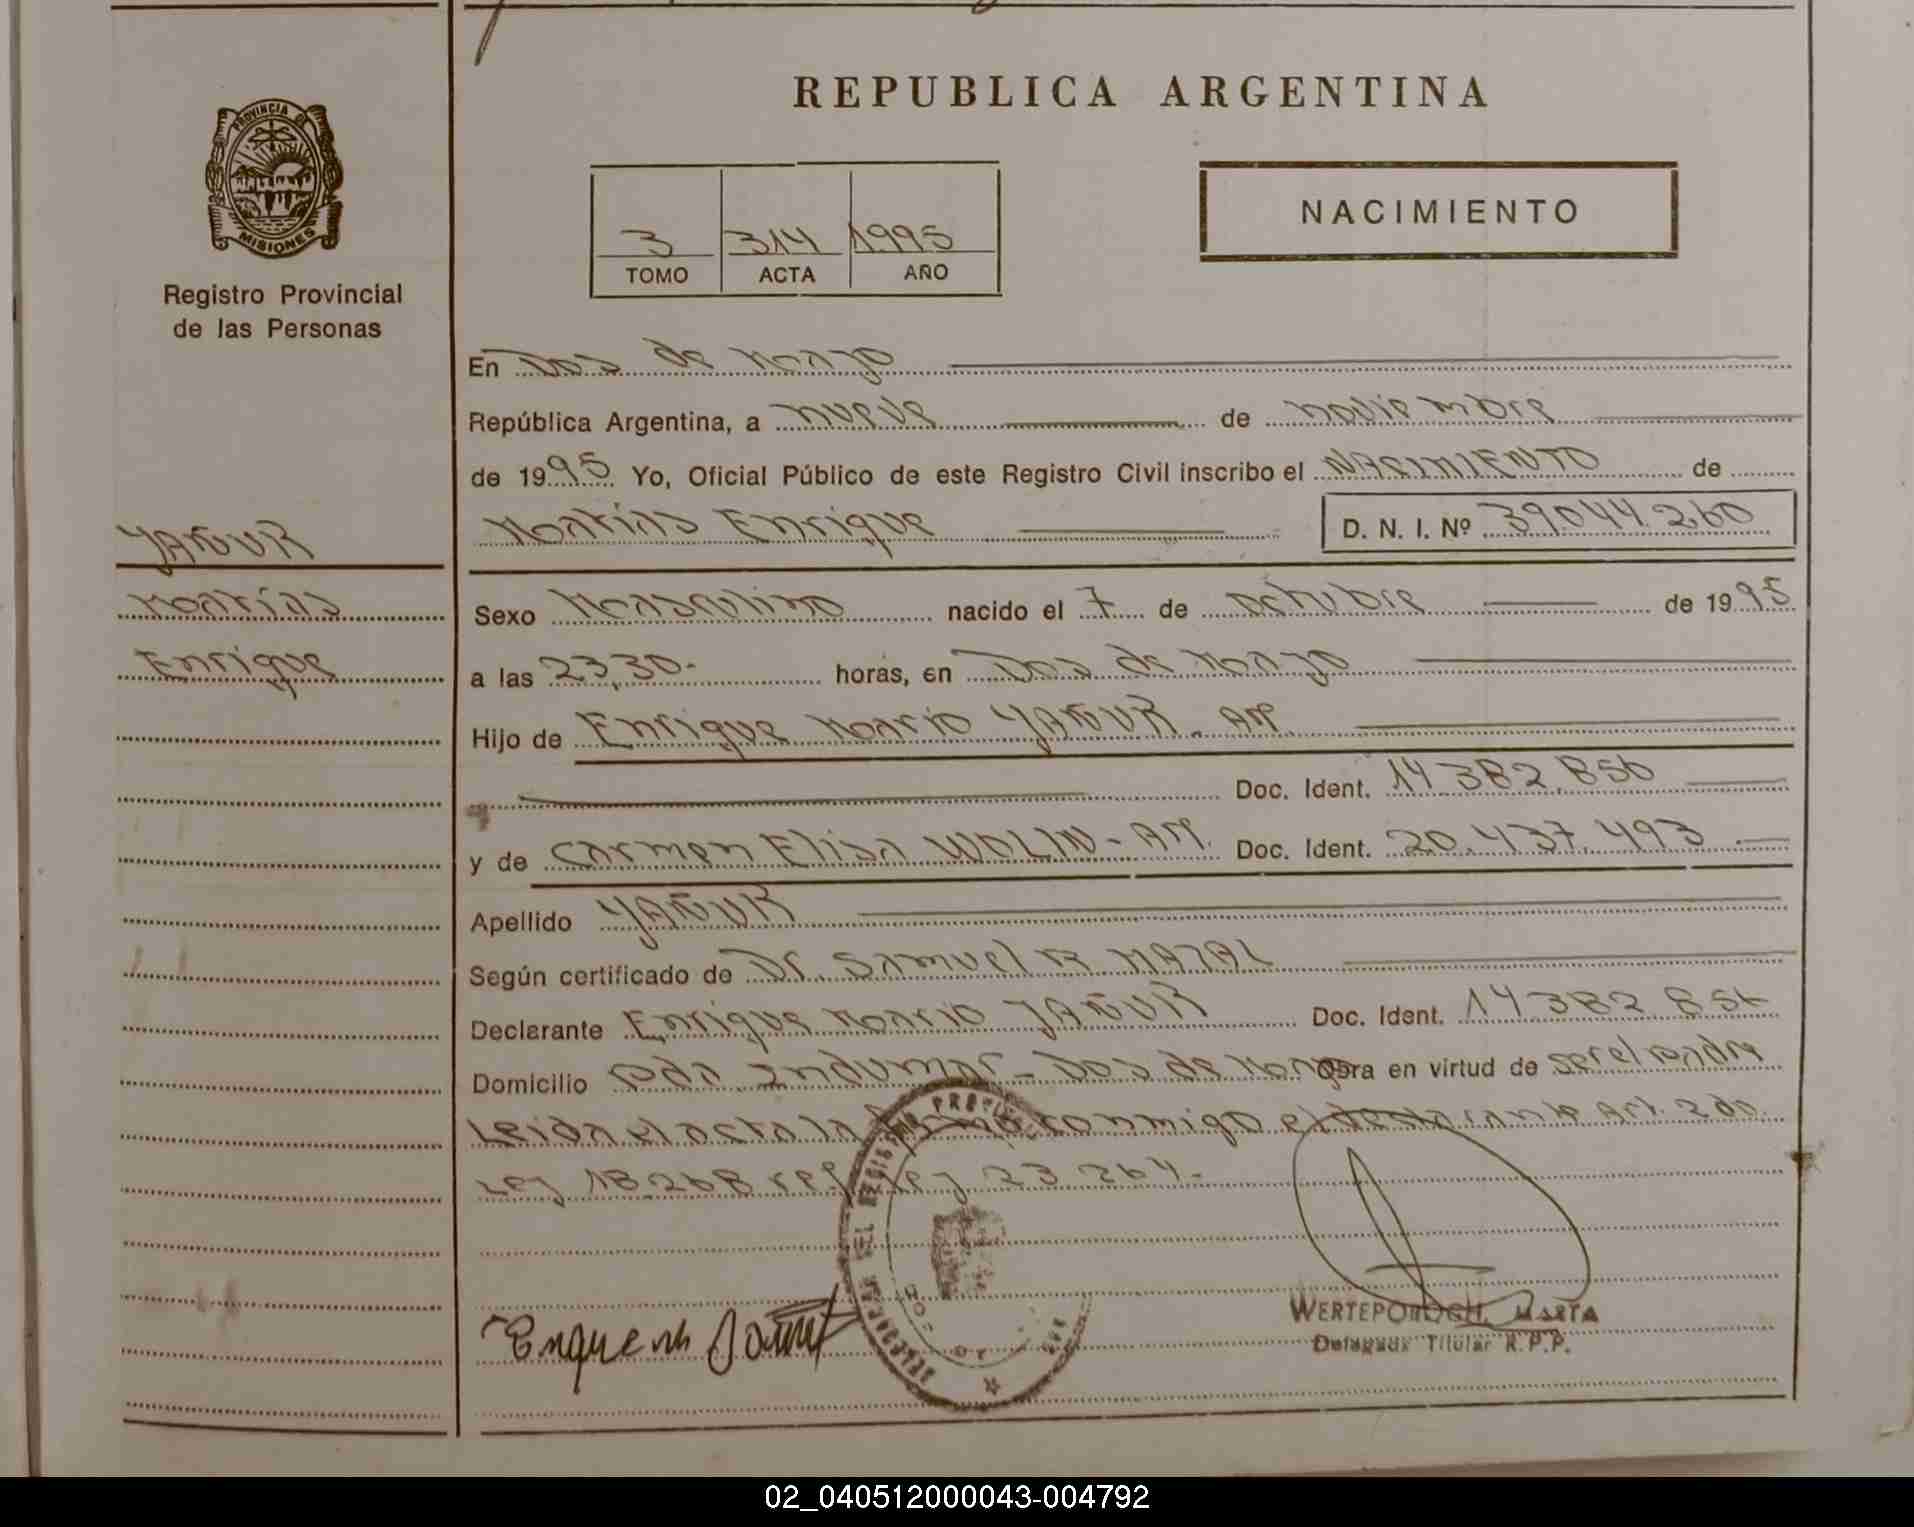 PROVINCIA DE
MISIONES
Registro Provincial
de las Personas
YAÑUR
Matías
Enrique
REPUBLICA ARGENTINA
3 314 1995
TOMO ACTA AÑO
NACIMIENTO
En Dos de Mayo
República Argentina, a nueve de noviembre
de 1995 Yo, Oficial Público de este Registro Civil inscribo el NACIMIENTO de
Matías Enrique D. N. I. Nº 39.044.260
Sexo Masculino nacido el 7 de octubre de 1995
a las 23,30- horas, en Dos de Mayo
Hijo de Enrique Mario YAÑUR. AM.
Doc. Ident. 14.382.856
y de Carmen Elisa WOLIN - AM. Doc. Ident. 20.437.493
Apellido YAÑUR
Según certificado de Dr. Samuel MAZAL
Declarante Enrique Mario YAÑUR Doc. Ident. 14.382.856
Domicilio Dos de Mayo Obra en virtud de ser el padre
Leída el acta la firma conmigo el declarante Art. 2do.
Ley 18.268 ref. Ley 23.264.-
WERTEPOROCH, MARTA
Delegada Titular R.P.P.
02_040512000043-004792